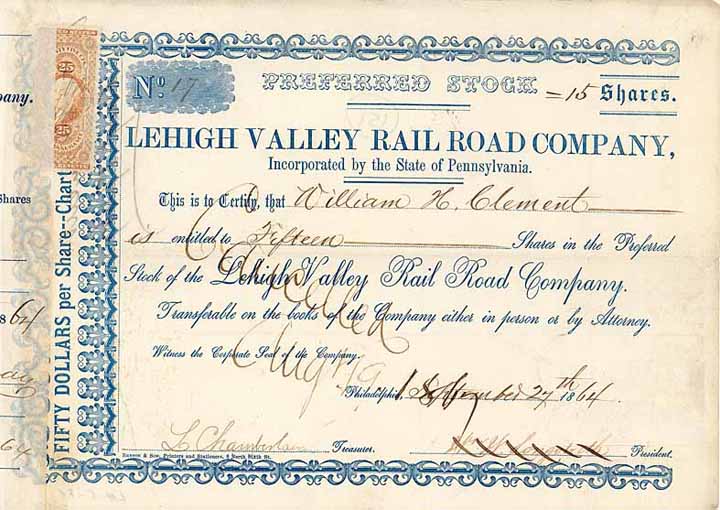 No. 17
PREFERRED STOCK
=15 Shares.
LEHIGH VALLEY RAIL ROAD COMPANY,
Incorporated by the State of Pennsylvania.
This is to Certify, that William H. Clement
is entitled to Fifteen Shares in the Preferred
Stock of the Lehigh Valley Rail Road Company.
Transferable on the books of the Company either in person or by Attorney.
Witness the Corporate Seal of the Company.
Philadelphia, September 27th 1864.
L Chamberlain Treasurer.
President.
Ranson & Son, Printers and Stationers, 8 North Sixth St.
Cancelled
Aug
FIFTY DOLLARS per Share--Chart
25
25
pany.
Shares
1864
64